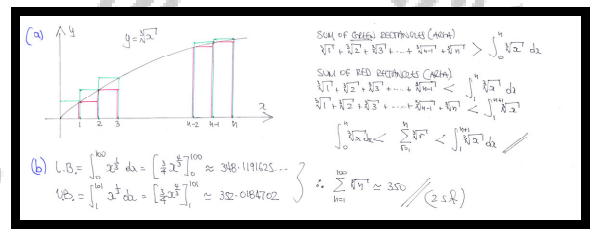 (a)
y
y = ∛x
x
1 2 3 n-2 n-1 n
SUM OF GREEN RECTANGLES (AREA)
∛1 + ∛2 + ∛3 + ... + ∛n-1 + ∛n > ∫₀ⁿ ∛x dx
SUM OF RED RECTANGLES (AREA)
∛1 + ∛2 + ∛3 + ... + ∛n-1 < ∫₁ⁿ ∛x dx
∛1 + ∛2 + ∛3 + ... + ∛n-1 + ∛n < ∫₁ⁿ⁺¹ ∛x
∫₀ⁿ ∛x dx < Σᵣ₌₁ⁿ ∛r < ∫₁ⁿ⁺¹ ∛x dx
(b) L.B. = ∫₀¹⁰⁰ x^⅓ dx = [¾ x^(4/3)]₀¹⁰⁰ ≈ 348.1191625...
U.B. = ∫₁¹⁰¹ x^⅓ dx = [¾ x^(4/3)]₁¹⁰¹ ≈ 352.0184702
∴ Σₙ₌₁¹⁰⁰ ∛n ≈ 350
(2 s.f.)